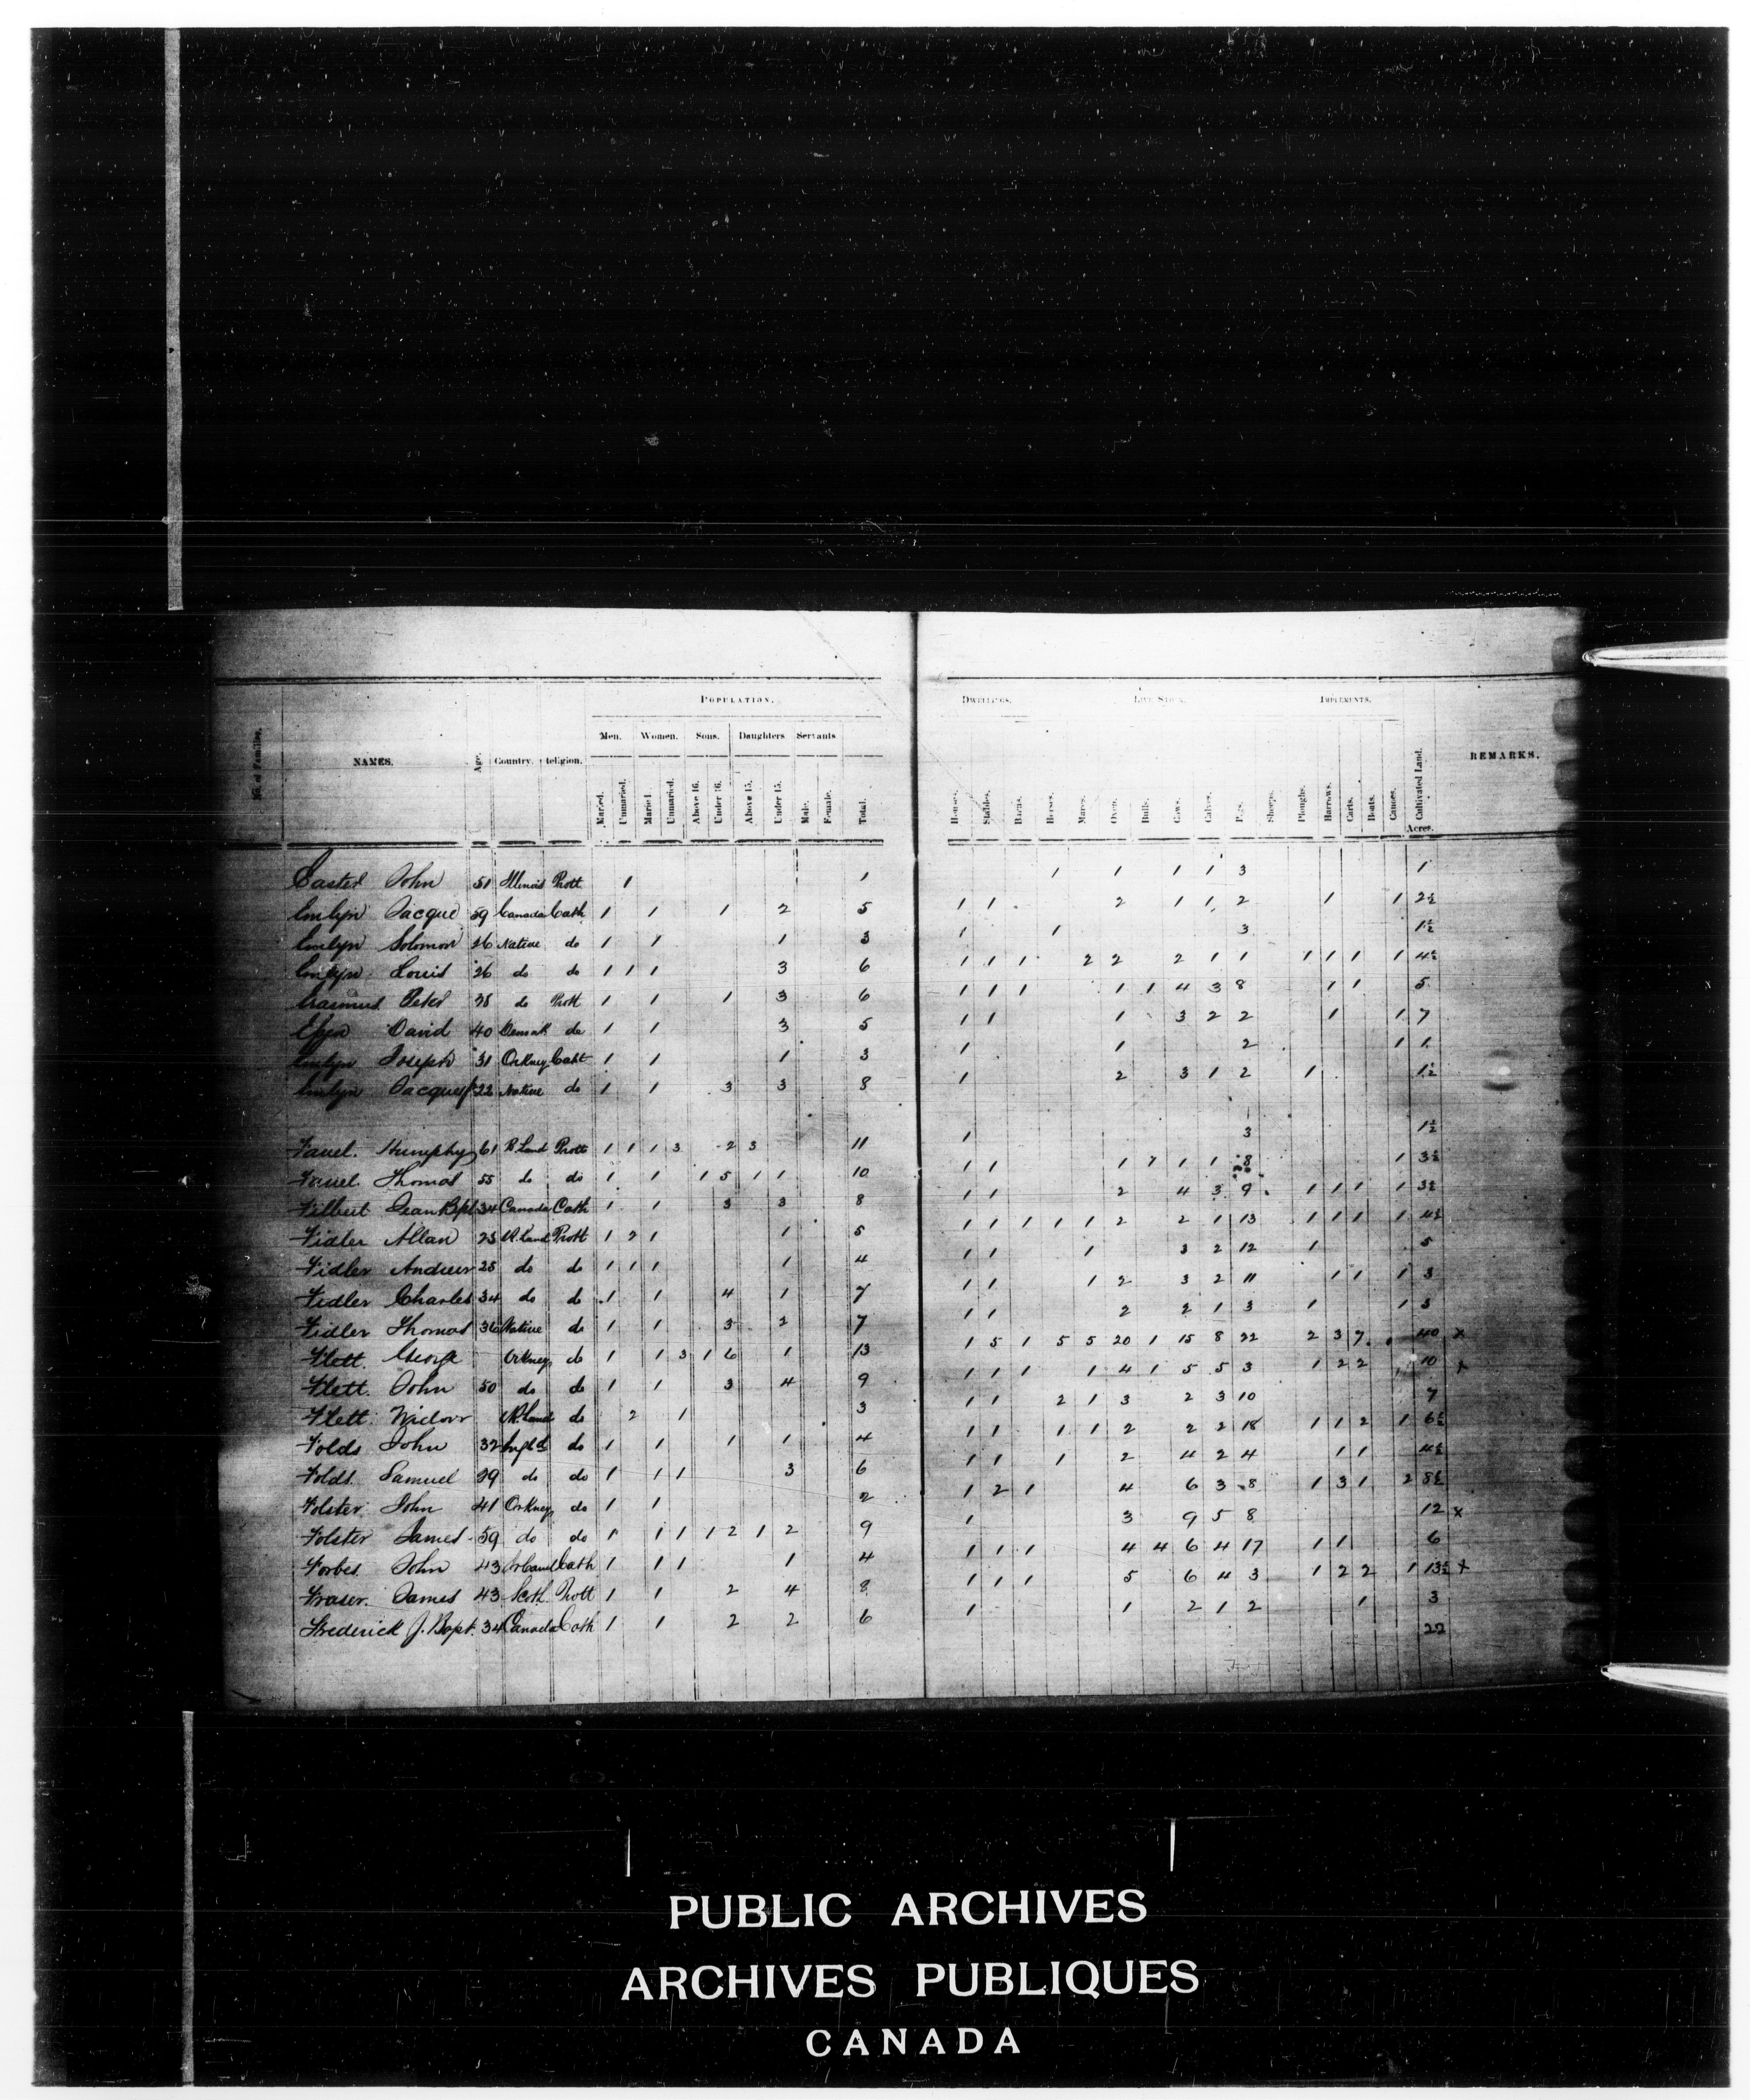 POPULATION. DWELLINGS. LIVE STOCK. IMPLEMENTS.
Men. Women. Sons. Daughters Servants
No. of Families. NAMES. Age. Country. Religion. REMARKS.
Married. Unmaried. Married. Unmaried. Above 16. Under 16. Above 15. Under 15. Male. Female. Total. Houses. Stables. Barns. Horses. Mares. Oxen. Bulls. Cows. Calves. Pigs. Sheeps. Ploughs. Harrows. Carts. Boats. Canoes. Cultivated Land.
Acres.
Easter John 51 Illinois Prott 1 1 1 1 1 1 3 1
Emlyn Jacque 59 Canada Cath 1 1 1 2 5 1 1 2 1 1 2 1 1 2½
Emlyn Solomon 26 Native do 1 1 1 3 1 1 3 1½
Emlyn Louis 26 do do 1 1 1 3 6 1 1 1 2 2 2 1 1 1 1 1 1 4½
Erasmus Peter do Prott 1 1 1 3 6 1 1 1 1 1 4 3 8 1 1 5
David 40 Denmak do 1 1 3 5 1 1 1 3 2 2 1 1 7
Emlyn Joseph 31 Orkney Caht 1 1 1 3 1 1 2 1 1
Emlyn Jacques 22 Native do 1 1 3 3 8 1 2 3 1 2 1 1½
Favel. Humphy 61 R. Land Prott 1 1 1 3 2 3 11 1 3 1½
Favel. Thomas 55 do do 1 1 1 5 1 1 10 1 1 1 1 1 8 1 3½
Filbert Jean Bpt 34 Canada Cath 1 1 3 3 8 1 1 2 4 3 9 1 1 1 1 3½
Fidler Allan 23 R. Land Prott 1 2 1 1 5 1 1 1 1 1 2 2 1 13 1 1 1 1 4½
Fidler Andrew 25 do do 1 1 1 1 4 1 1 1 3 2 12 1 5
Fidler Charles 34 do do 1 1 4 1 7 1 1 1 2 3 2 11 1 1 1 3
Fidler Thomas 36 Native do 1 1 3 2 7 1 1 2 2 1 3 1 1 3
Flett. George Orkney do 1 1 3 1 6 1 13 1 5 1 5 5 20 1 15 8 22 2 3 7 40 x
Flett. John 50 do do 1 1 3 4 9 1 1 1 1 4 1 5 5 3 1 2 2 10 x
Flett. Widow R. Land do 2 1 3 1 1 2 1 3 2 3 10 7
Folds John 32 Engld do 1 1 1 1 4 1 1 1 1 2 2 2 18 1 1 2 1 6½
Folds. Samuel 29 do do 1 1 1 3 6 1 1 1 2 4 2 4 1 1 4½
Folster John 41 Orkney do 1 1 2 1 2 1 4 6 3 8 1 3 1 2 8½
Folster James 59 do do 1 1 1 1 2 1 2 9 1 3 9 5 8 12 x
Forbes. John 43 Cath 1 1 1 1 4 1 1 1 4 4 6 4 17 1 1 6
Fraser. James 43 Scotl. Prott 1 1 2 4 8 1 1 1 5 6 4 3 1 2 2 1 13½ x
Frederick J. Bapt. 34 Canada Cath 1 1 2 2 6 1 1 2 1 2 1 3
22
PUBLIC ARCHIVES
ARCHIVES PUBLIQUES
CANADA